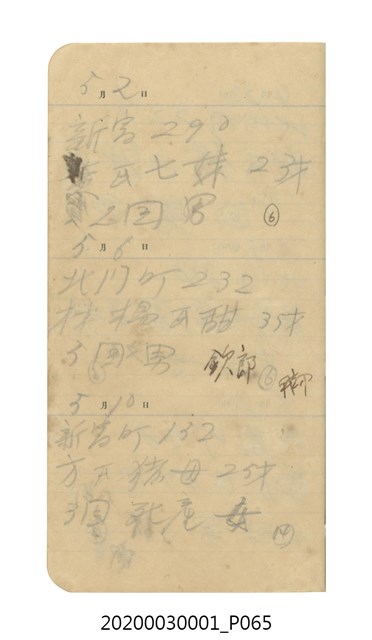 5月2日
新富 290
氏七妹 23才
2回 男 ⑥
5月6日
北門町 232
林楊氏甜 35才
5回 男 欽郎 ⑥
5月10日
新富町 132
方氏猪母 25才
3回 雅童 女
20200030001_P065